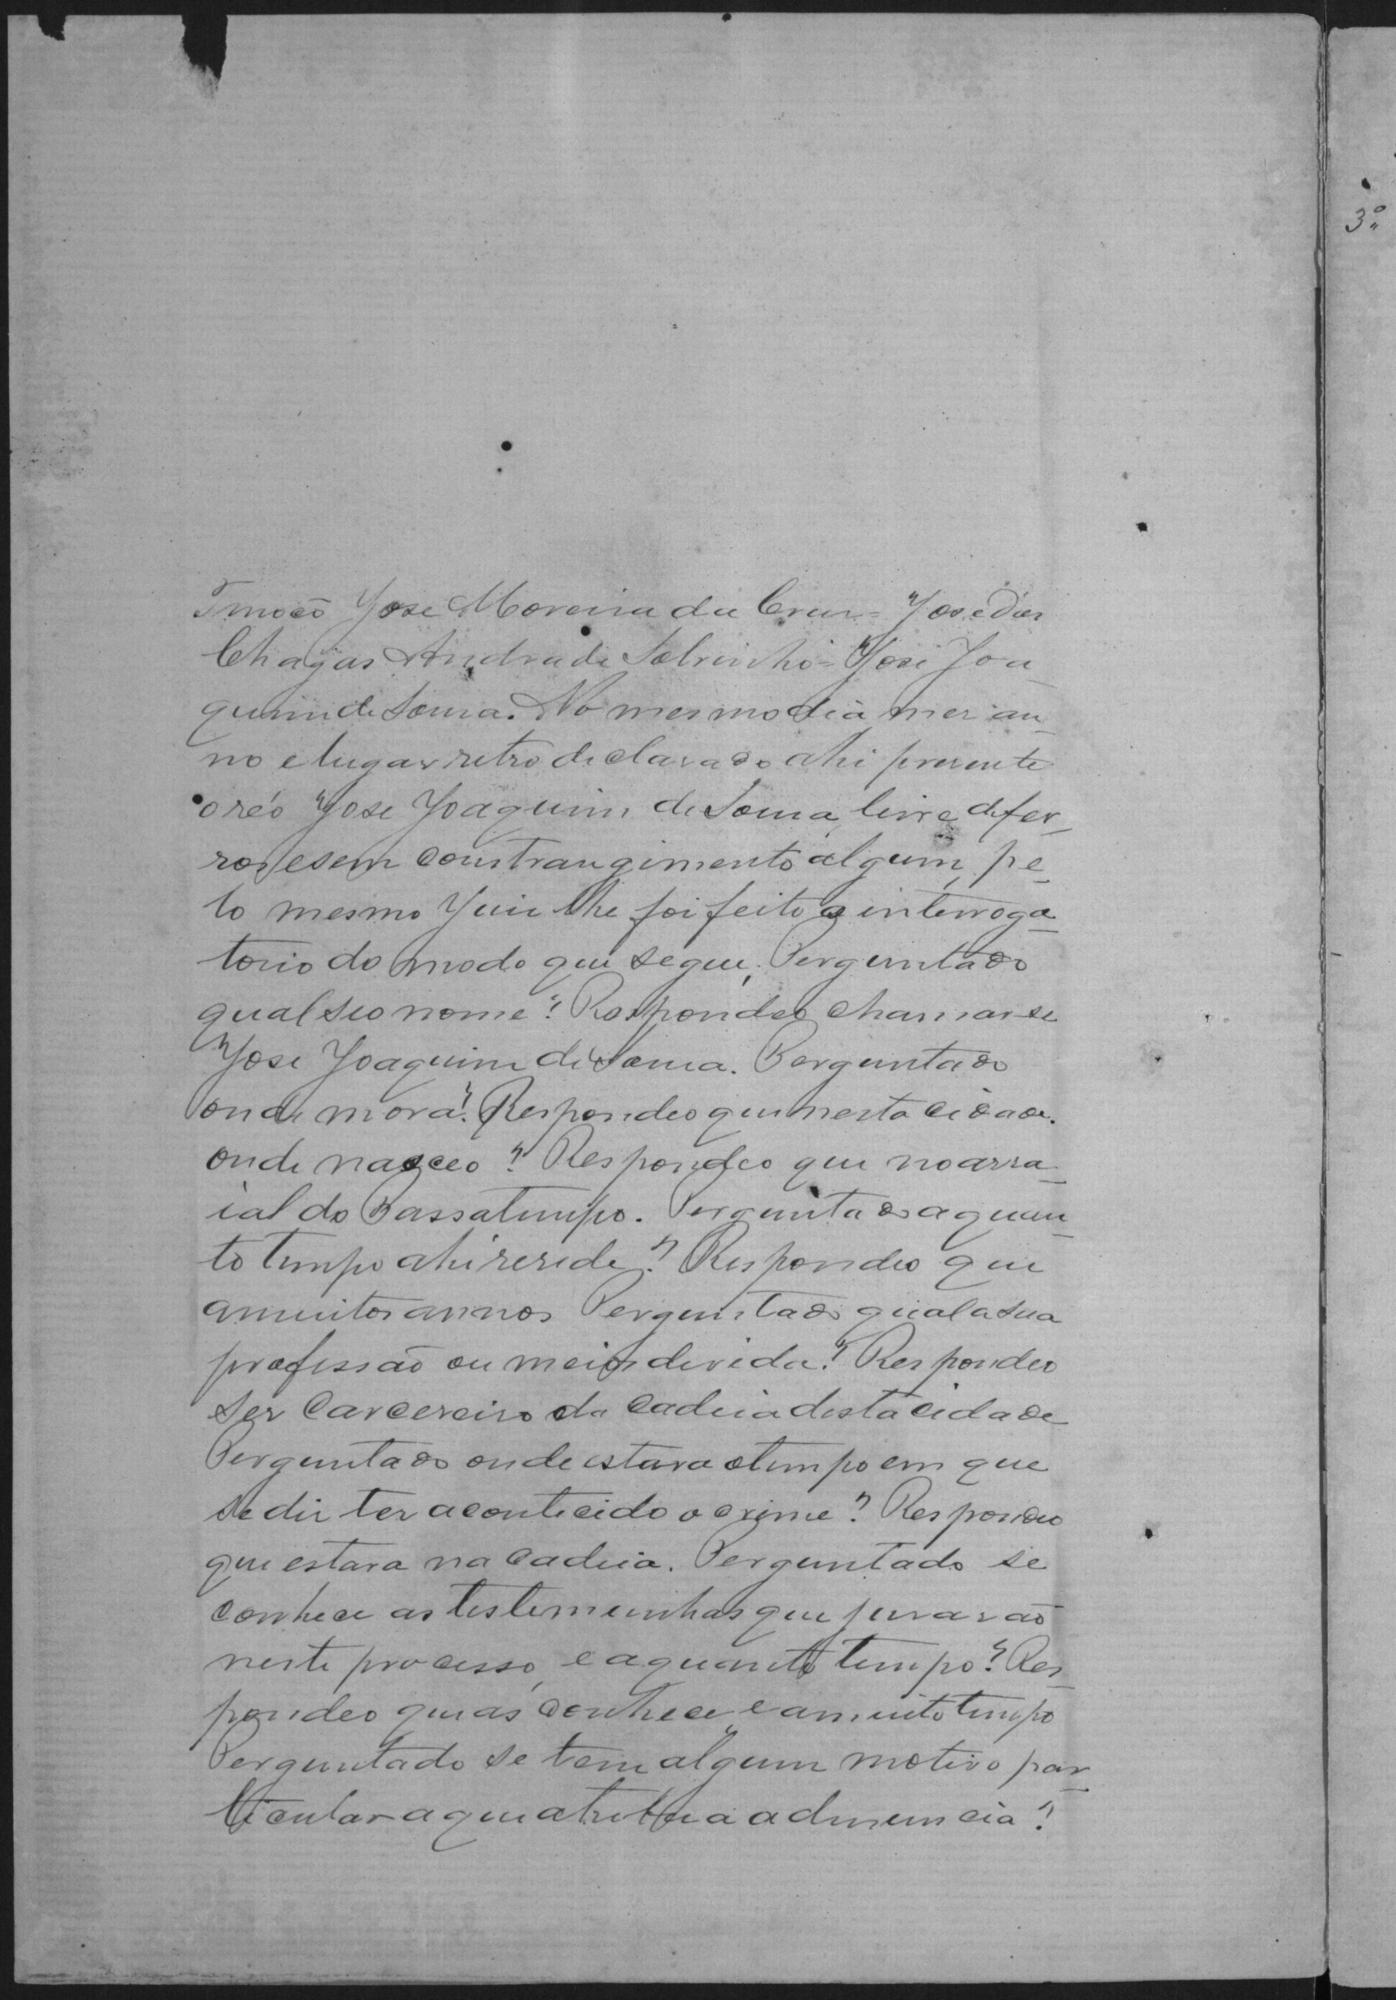 Timoteo José Moreira da Cruz = José das
Chagas Andrade Sobrinho = José Joa
quim de Sousa. No mesmo dia mes an
no e lugar retro declarado ahi presente
o réo José Joaquim de Sousa, livre de fer
ros e sem constrangimento algum, pe
lo mesmo Juiz lhe foi feito o interroga
torio do modo que segue, Perguntado
qual seo nome? Respondeo chamar-se
José Joaquim de Sousa. Perguntado
onde mora? Respondeo que nesta cidade.
onde nasceo? Respondeo que no arra
ial do Passatempo. Perguntado a quan
to tempo ahi reside? Respondeo que
a muitos annos Perguntado qual a sua
profissão ou meios de vida? Respondeo
ser Carcereiro da Cadeia desta cidade
Perguntado onde estava o tempo em que
se diz ter acontecido o crime? Respondeo
que estava na Cadeia. Perguntado se
conhece as testemunhas que jurarão
neste processo, e a quanto tempo? Res
pondeo que as conhece e a muito tempo
Perguntado se tem algum motivo par
ticular a que atribua a denuncia?
3º